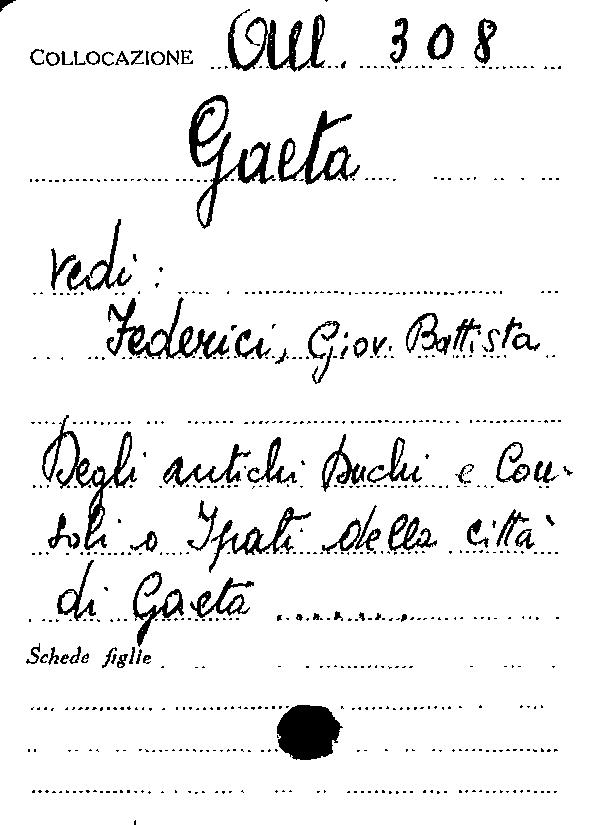 COLLOCAZIONE 308
Gaeta
vedi:
Federici, Giov. Battista
Degli antichi Duchi e Con-
soli o Ipati della città
di Gaeta .......
Schede figlie